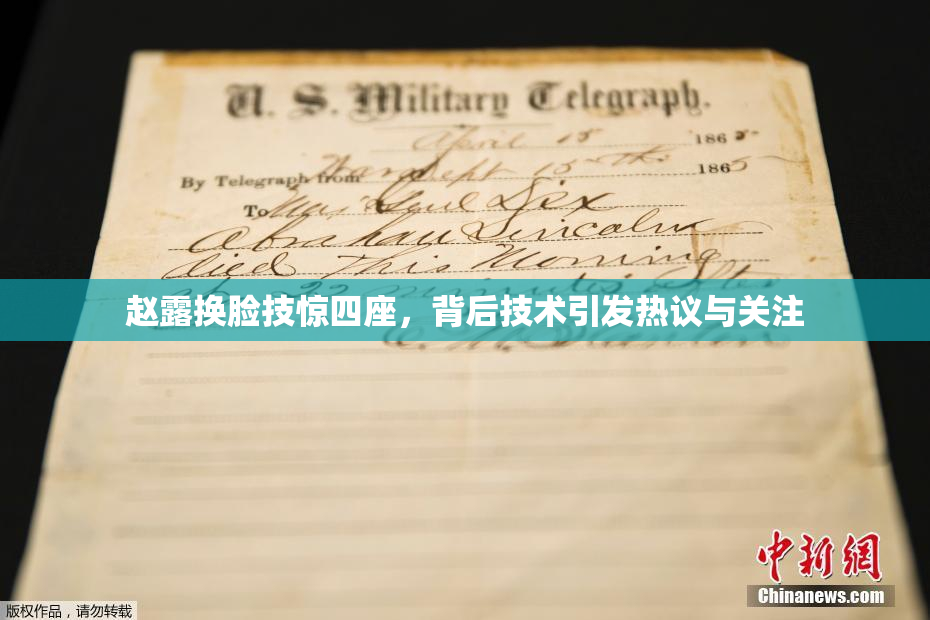 U. S. Military Telegraph.
April 15 1865
By Telegraph from War Dept 15th 1865
To Maj Genl Dix
Abraham Lincoln
died This Morning
at 22 minutes after
赵露换脸技惊四座，背后技术引发热议与关注
E. M. Stanton
中新网
Chinanews.com
版权作品，请勿转载